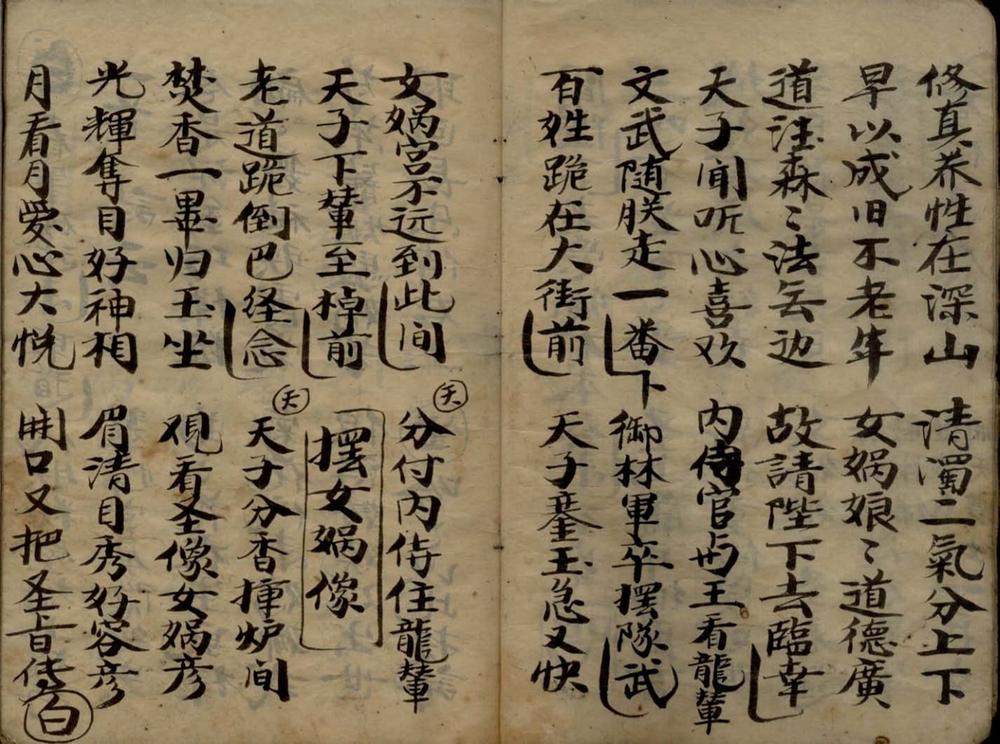 修真养性在深山 清濁二氣分上下
早以成旧不老年 女娲娘〻道德廣
道注森〻法无边 故請陛下去臨幸
天子闻听心喜欢 内侍官与王看龍輦
文武随朕走一番下 御林軍卒擺隊武
百姓跪在大街前 天子 玉急又快
女娲宫不远到此间 天 分付内侍住龍輦
天子下輦至棹前 擺女娲像
老道跪倒巴经念 天 天子分香揷炉间
焚香一畢归玉坐 观看圣像女娲彦
光輝奪目好神相 眉清目秀好容彦
月看月愛心大悦 開口又把圣旨传 白